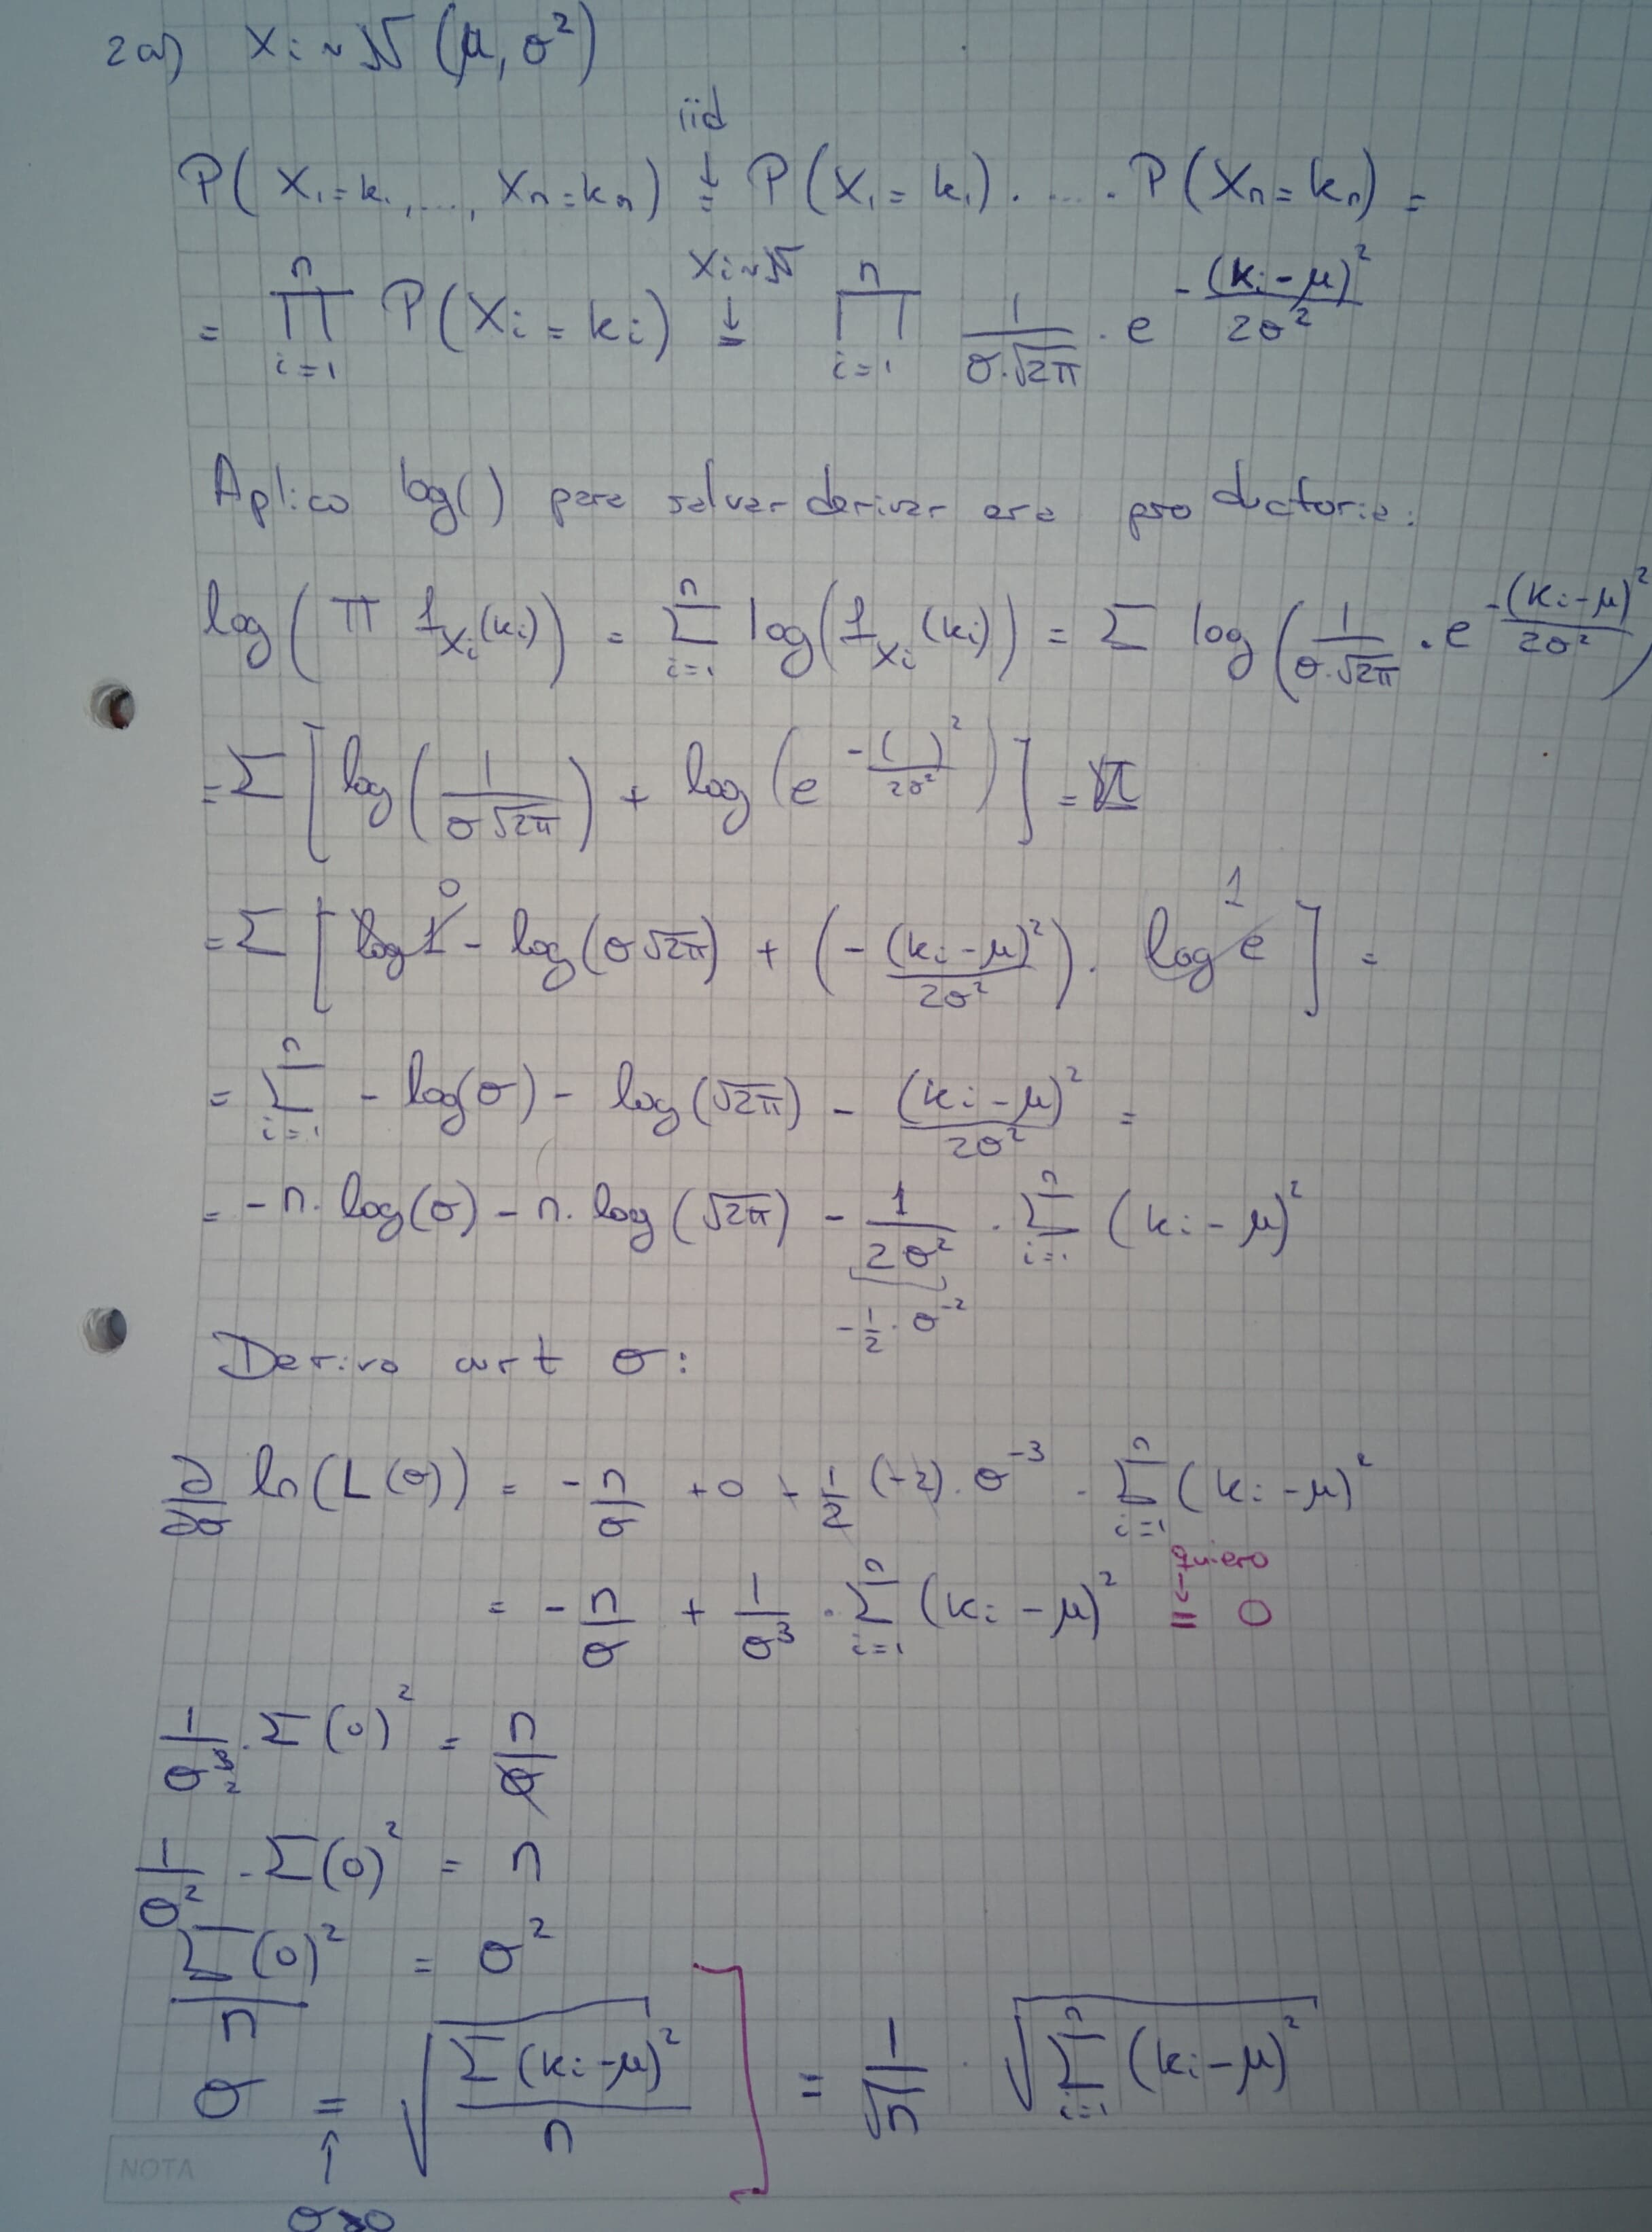 2a) Xi ~ N (μ, σ²)
iid
↓
P( X₁=k₁,..., Xn=kn) = P(X₁=k₁). .... . P(Xn=kn) =
Xi~N
↓
= ∏ᵢ₌₁ⁿ P(Xi=ki) = ∏ᵢ₌₁ⁿ 1/(σ.√2π) . e^(-(ki-μ)²/2σ²)
Aplico log() para salvar derivar productoria:
log( π f_Xi(ki) ) = Σᵢ₌₁ⁿ log( f_Xi(ki) ) = Σ log( 1/(σ.√2π) . e^(-(ki-μ)²/2σ²) )
= Σ [ log( 1/(σ√2π) ) + log( e^(-( )²/2σ²) ) ] =
= Σ [ log 1 0 - log(σ√2π) + ( -(ki-μ)²/2σ² ) . log e 1 ] =
= Σᵢ₌₁ⁿ - log(σ) - log(√2π) - (ki-μ)²/2σ² =
= -n. log(σ) - n. log(√2π) - 1/2σ² . Σᵢ₌₁ⁿ (ki-μ)²
-1/2 . σ⁻²
Derivo wrt σ:
∂/∂σ ln(L(σ)) = -n/σ + 0 - 1/2 (-2). σ⁻³ . Σᵢ₌₁ⁿ (ki-μ)²
quiero
↓
= -n/σ + 1/σ³ . Σᵢ₌₁ⁿ (ki-μ)² = 0
1/σ² . Σ(0)² = n/σ
1/σ² . Σ(0)² = n
Σ(0)²/n = σ²
σ = √(Σ(ki-μ)²/n) ] = 1/√n . √(Σᵢ₌₁ⁿ (ki-μ)²)
↑
σ>0
NOTA